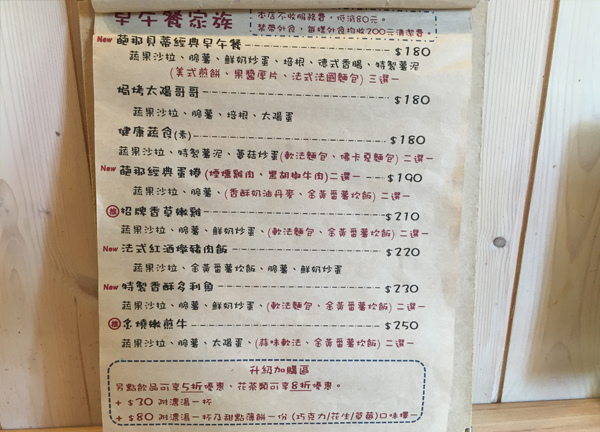 早午餐家族
本店不收服務費，低消80元。
禁帶外食，每樣外食均收200元清潔費。
New 葩那貝蒂經典早午餐 $180
蔬果沙拉、脆薯、鮮奶炒蛋、培根、德式香腸、特製薯泥
(美式煎餅、果醬厚片、法式法國麵包) 三選一
焗烤太陽哥哥 $180
蔬果沙拉、脆薯、培根、太陽蛋
健康蔬食(素) $180
蔬果沙拉、特製薯泥、蘑菇炒蛋(軟法麵包、佛卡夏麵包) 二選一
New 葩那經典蛋捲 (煙燻雞肉、黑胡椒牛肉)二選一 $190
蔬果沙拉、脆薯、(香酥奶油丹麥、金黃番薯炊飯) 二選一
推 招牌香草嫩雞 $210
蔬果沙拉、脆薯、鮮奶炒蛋、(軟法麵包、金黃番薯炊飯) 二選一
New 法式紅酒燉豬肉飯 $220
蔬果沙拉、金黃番薯炊飯、脆薯、鮮奶炒蛋
New 特製香酥多利魚 $230
蔬果沙拉、脆薯、鮮奶炒蛋、(軟法麵包、金黃番薯炊飯) 二選一
推 炙燒嫩煎牛 $250
蔬果沙拉、脆薯、太陽蛋、(蒜味軟法、金黃番薯炊飯) 二選一
升級加購區
另點飲品可享5折優惠、花茶類可享8折優惠。
+ $30 附濃湯一杯
+ $80 附濃湯一杯及甜點薄餅一份 (巧克力/花生/草莓)口味擇一